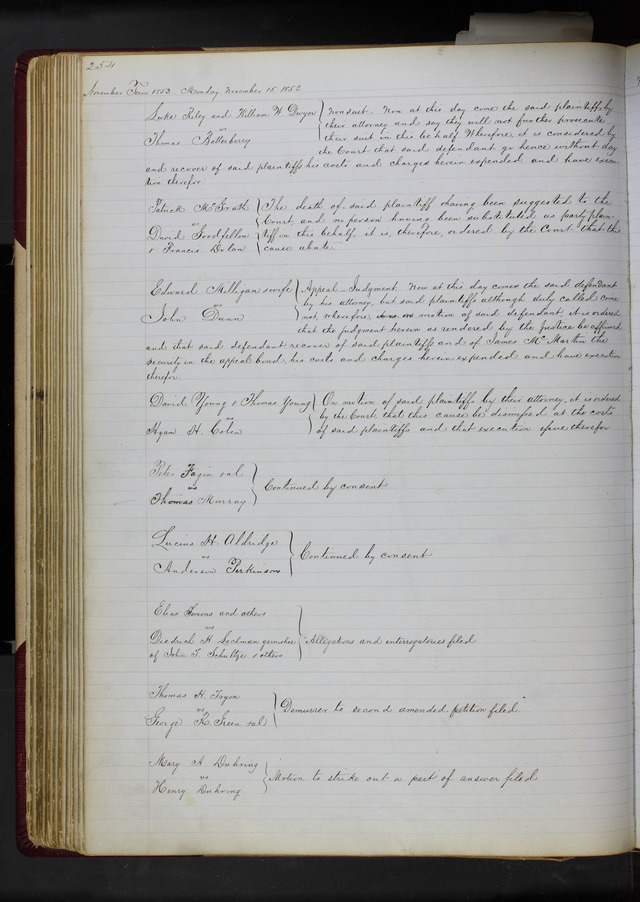 254
November Term 1852. Monday November 15. 1852
Luke Kiley and William W. Dwyer } Nonsuit. Now at this day come the said plaintiffs by
vs their attorney and say they will not further prosecute
Thomas Battenberry their suit in this behalf. Wherefore, it is considered by
the Court that said defendant go hence without day
and recover of said plaintiffs his costs and charges herein expended and have execu-
tion therefor.
Patrick McGrath } The death of said plaintiff having been suggested to the
vs Court, and no person having been substituted as party plain-
David Goodfellow tiff in this behalf. it is, therefore, ordered by the Court that this
& Francis Dolan cause abate.
Edward Milligan & wife } Appeal - Judgment Now at this day comes the said defendant
vs by his attorney, but said plaintiffs although duly called come
John Dunn not, wherefore, on motion of said defendant it is ordered
that the judgment herein as rendered by the Justice be affirmed
and that said defendant recover of said plaintiffs and of James McMartin the
security in the appeal bond, his costs and charges herein expended and have execution
therefor.
David Young & Thomas Young } On motion of said plaintiffs by their attorney, it is ordered
vs by the Court that this cause be dismissed at the costs
Hyan H. Cohen of said plaintiffs and that execution issue therefor
Peter Fagin & al
vs } Continued by consent
Thomas Murray
Lucius H. Aldredge
vs } Continued by consent
Anderson Perkinson
Elias Simons and others
vs
Diedrich H. Lochman garnishee } Allegations and interrogatories filed
of John T. Schultze & others
Thomas H. Tryon
vs } Demurrer to second amended petition filed
George K. Green & al
Mary A. Duhring
vs } Motion to strike out a part of answer filed
Henry Duhring